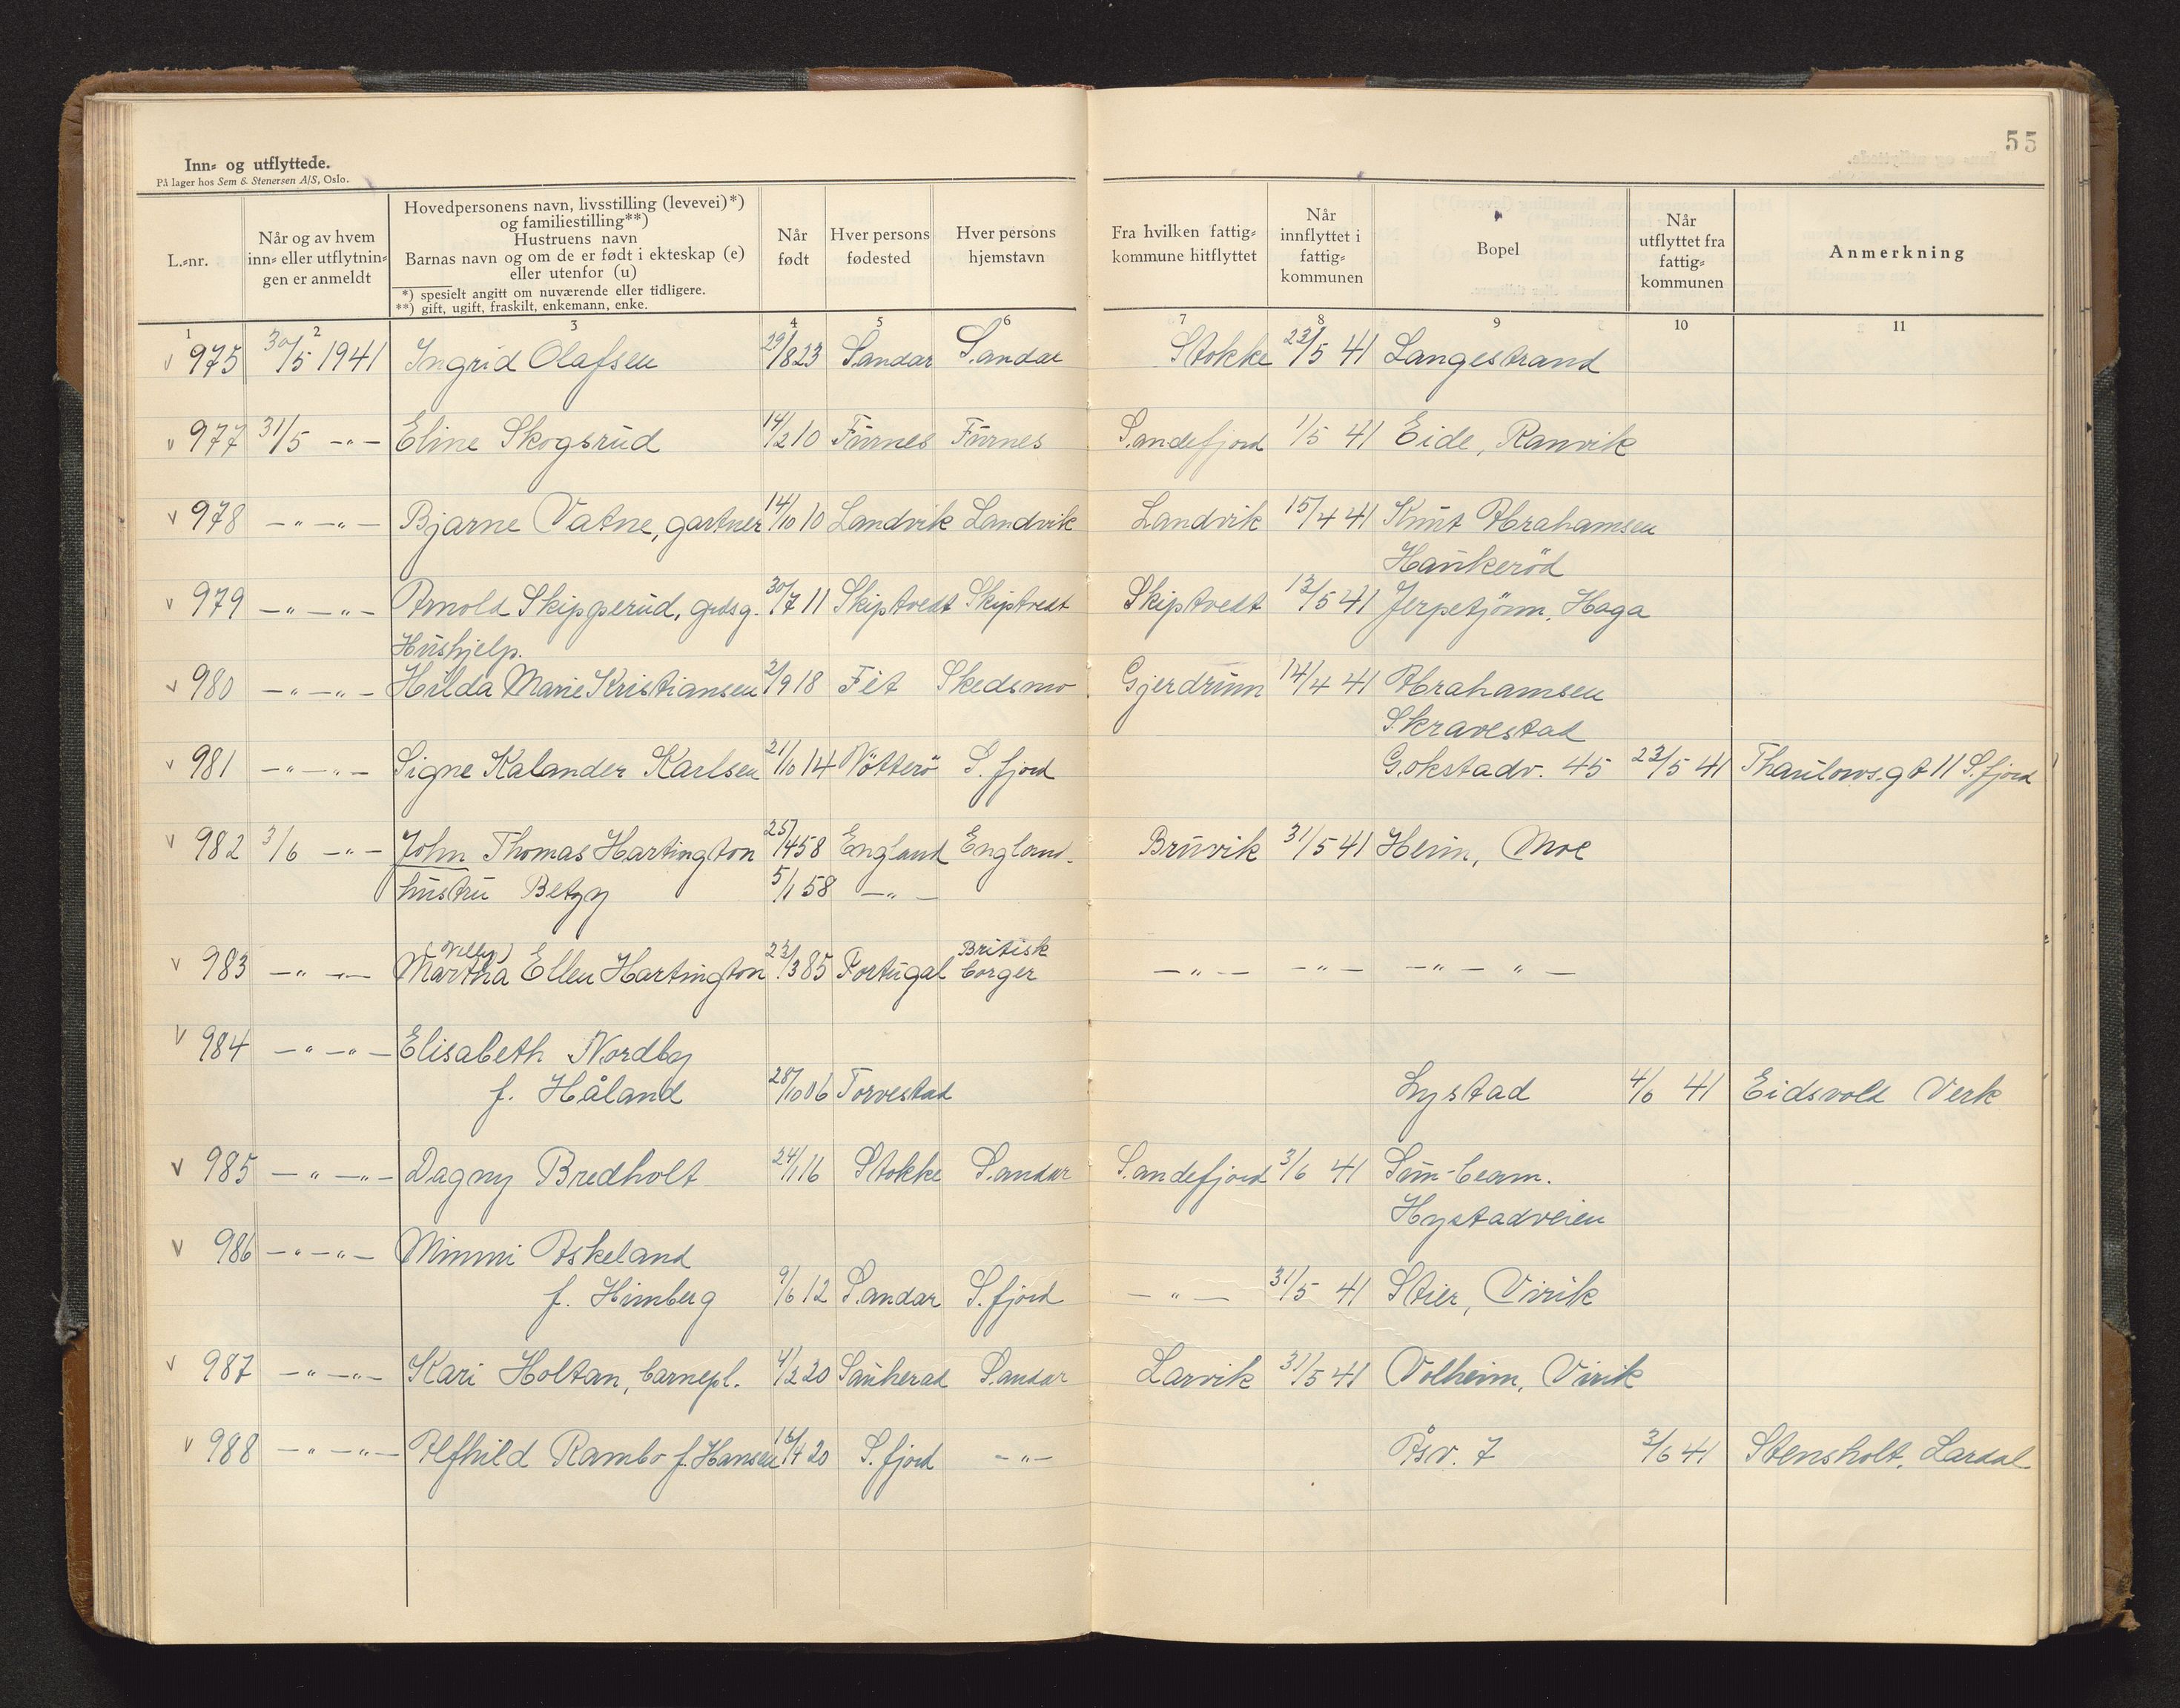 55
Inn- og utflyttede.
På lager hos Sem & Stenersen A/S, Oslo.
L.-nr.
Når og av hvem
inn- eller utflytnin-
gen er anmeldt
Hovedpersonens navn, livsstilling (levevei)*)
og familiestilling**)
Hustruens navn
Barnas navn og om de er født i ekteskap (e)
eller utenfor (u)
*) spesielt angitt om nuværende eller tidligere.
**) gift, ugift, fraskilt, enkemann, enke.
Når
født
Hver persons
fødested
Hver persons
hjemstavn
Fra hvilken fattig-
kommune hitflyttet
Når
innflyttet i
fattig-
kommunen
Bopel
Når
utflyttet fra
fattig-
kommunen
Anmerkning
1 2 3 4 5 6 7 8 9 10 11
v 975 30/5 1941 Ingrid Olafsen 29/8 23 Sandar Sandar Stokke 23/5 41 Langestrand
v 977 31/5 -"- Eline Skogsrud 14/2 10 Furnes Furnes Sandefjord 1/5 41 Eide, Ranvik
v 978 -"-"- Bjarne Vatne, gartner 14/10 10 Landvik Landvik Landvik 15/4 41 Knut Abrahamsen
Haukerød
v 979 -"-"- Arnold Skipperud, grdsg. 30/7 11 Skiptvedt Skiptvedt Skiptvedt 13/5 41 Jerpetjönn, Haga
Hushjelp.
v 980 -"-"- Hilda Marie Kristiansen 2/9 18 Fet Skedsmo Gjerdrum 14/4 41 Abrahamsen
Skravestad
v 981 -"-"- Signe Kalander Karlsen 21/10 14 Nötterö S. fjord Gokstadv. 45 23/5 41 Thaulows.gt 11 S.fjord
v 982 3/6 -"- John Thomas Hartington 25/4 58 England England. Bruvik 31/5 41 Heim, Moe
hustru Betzy 5/1 58 -"-
(Nelly) Britisk
v 983 -"-"- Martha Ellen Hartington 23/3 85 Portugal borger -"- -"- -"-"-
v 984 -"-"- Elisabeth Nordby
f. Håland 28/10 06 Torvestad Lystad 4/6 41 Eidsvold Verk
v 985 -"-"- Dagny Bredholt 24/1 16 Stokke Sandar Sandefjord 3/6 41 Sun-beam.
Hystadveien
v 986 -"-"- Mimmi Askeland
f. Himberg 9/6 12 Sandar S. fjord -"- 31/5 41 Stier, Virik
v 987 -"-"- Kari Holtan, barnepl. 4/2 20 Sauherad Sandar Larvik 31/5 41 Volheim, Virik
v 988 -"-"- Alfhild Rambo f. Hansen 16/4 20 S. fjord -"- Åsv. 7 3/6 41 Stensholt, Lardal